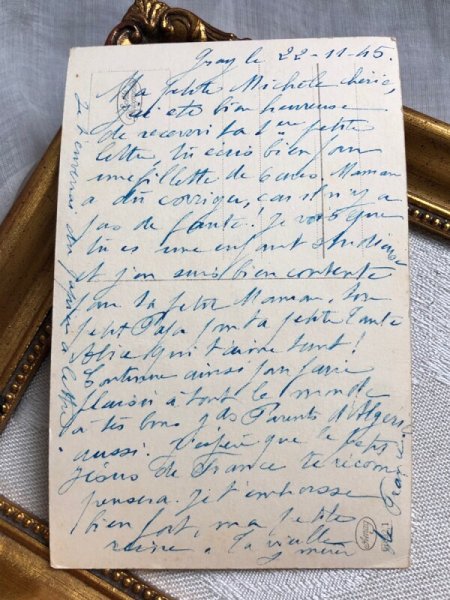 Gray le 22-11-45.
Ma petite Michèle chérie,
j'ai été bien heureuse
de recevoir ta 1ère petite
lettre, tu écris bien pour
une fillette de 6 ans. Maman
a dû corriger, car il n'y a
pas de faute. Je vois que
tu es une enfant studieuse
et j'en suis bien contente
pour ta petite Maman, ton
petit Papa pour ta petite Tante
Alice qui t'aime tant!
Continue ainsi pour faire
plaisir à tout le monde
à tes bons gds Parents d'Algérie
aussi. J'espère que le petit
Jésus de France te récom
pensera. je t'embrasse
bien fort, ma petite
reine. Ta vieille
Je t'enverrai du papier à lettre